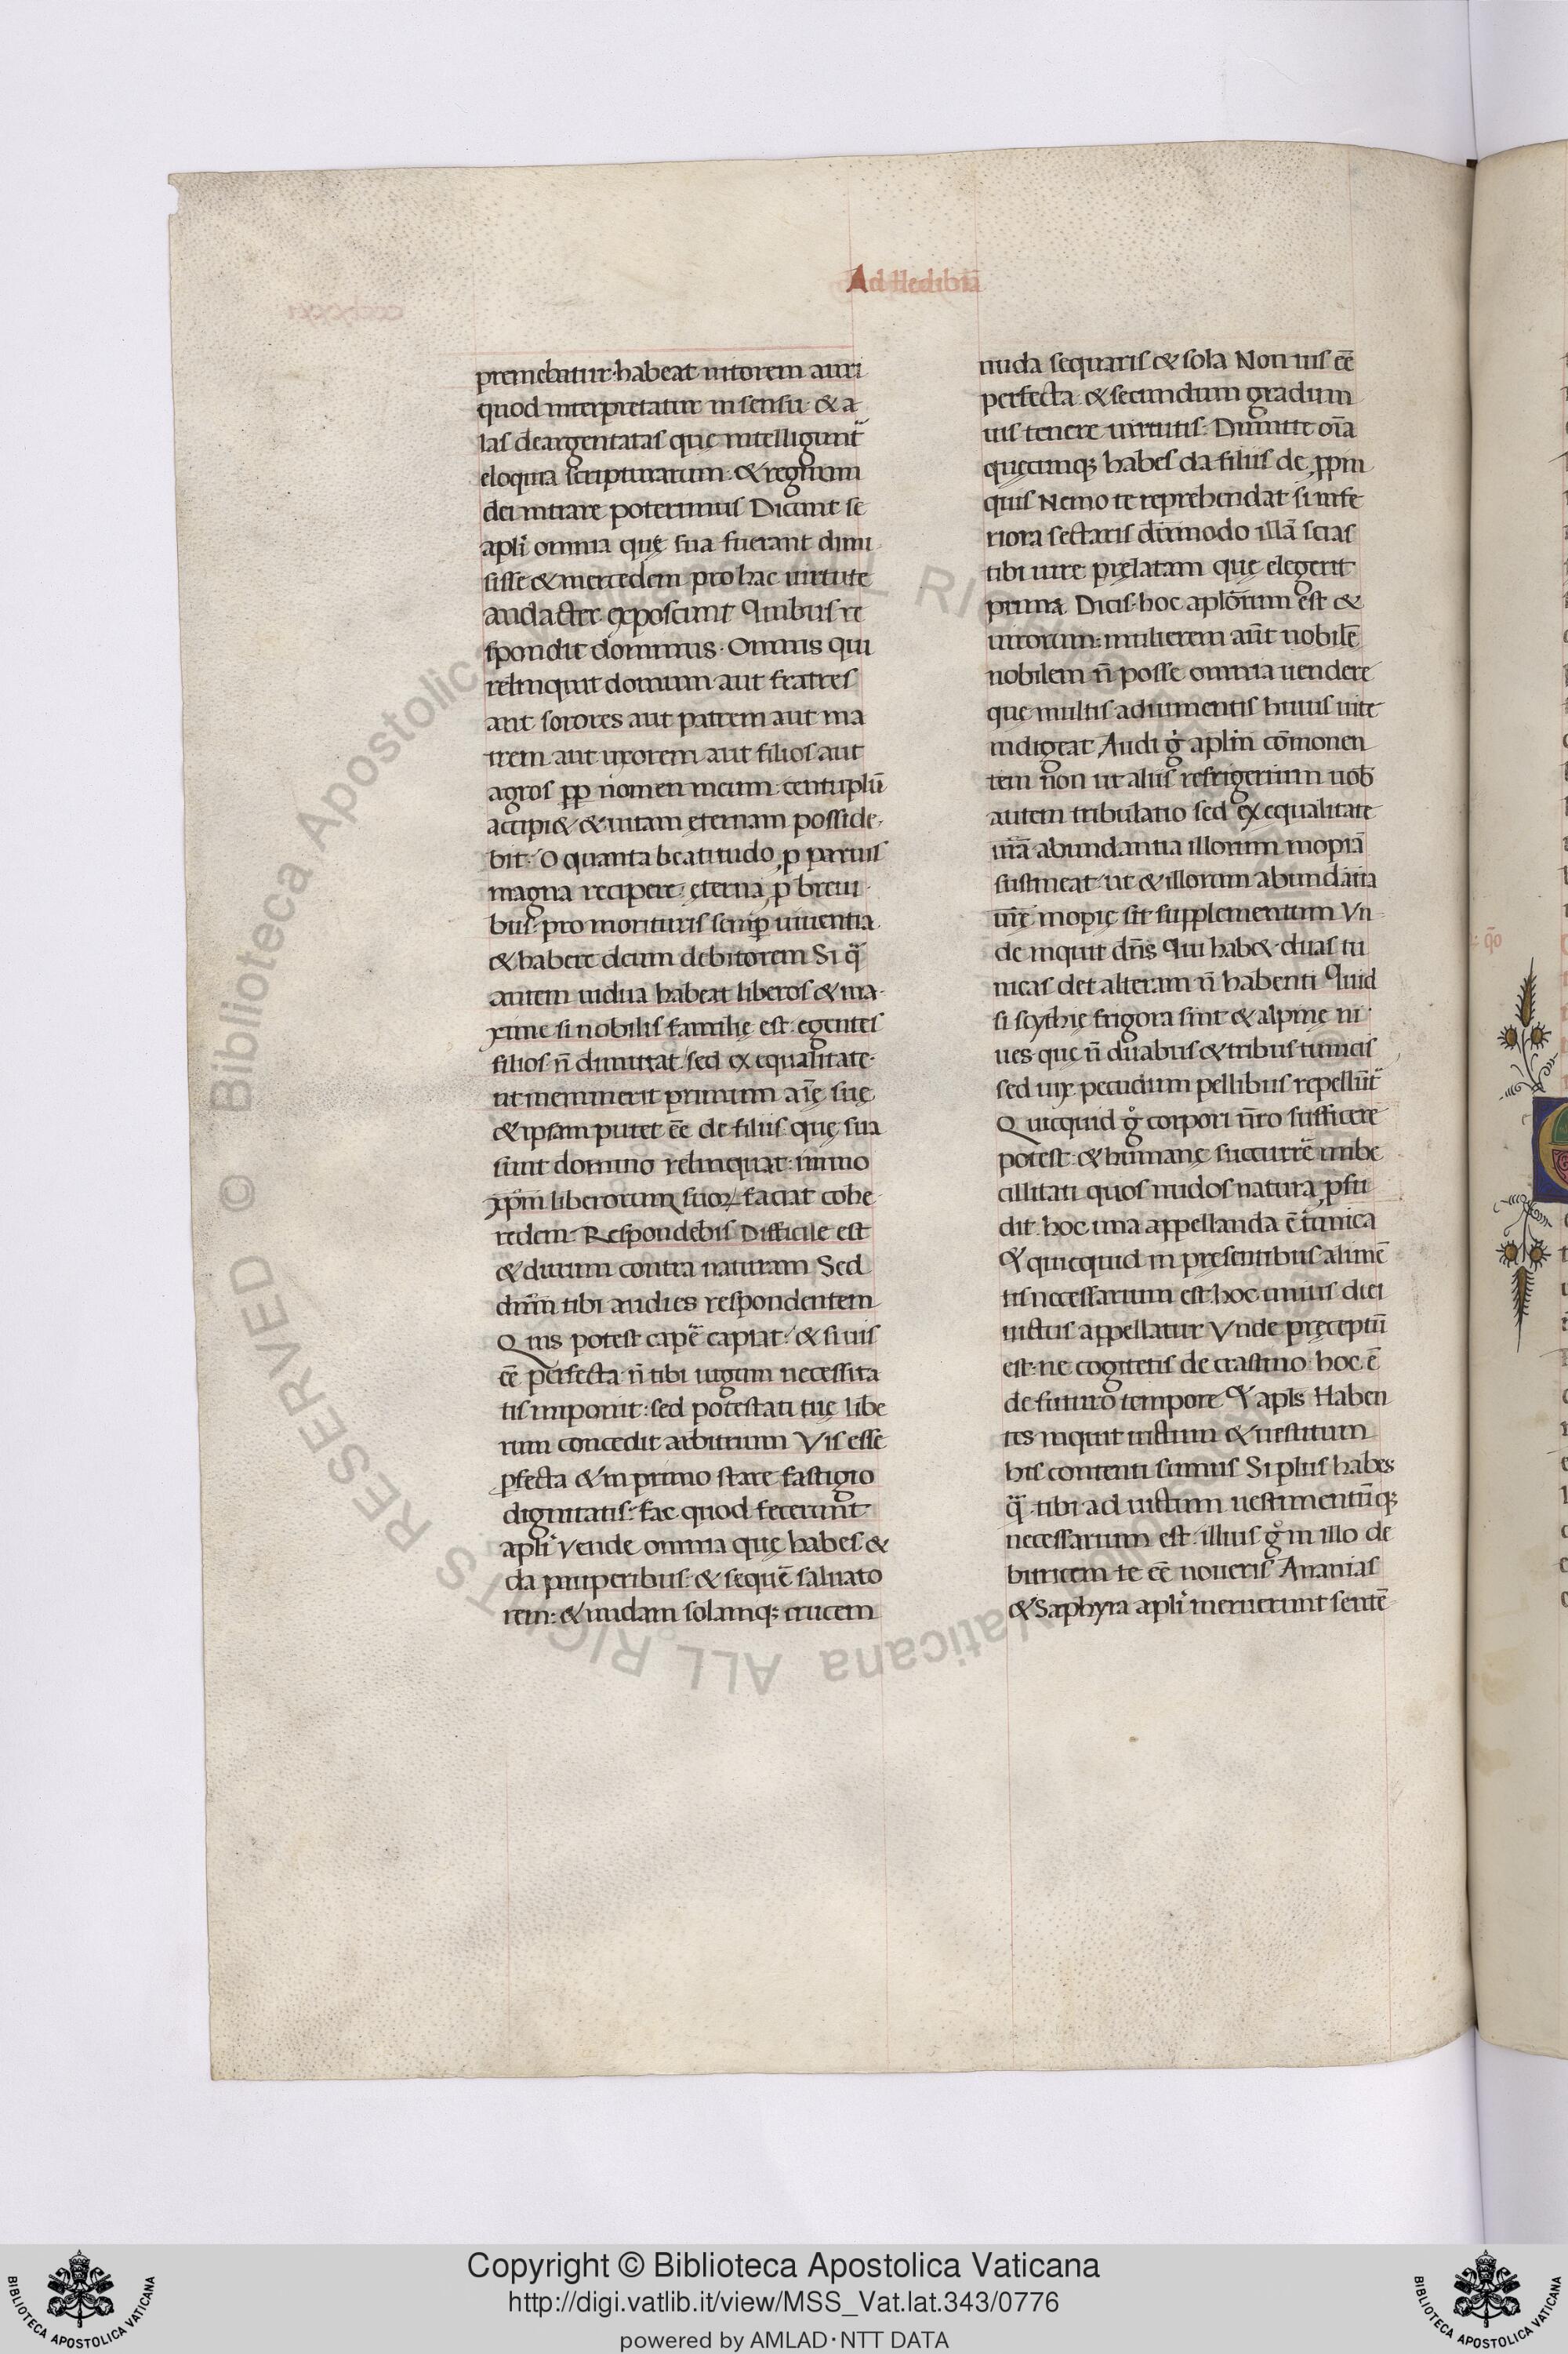 Ad Hedibiā
premebatur·habeat nitorem auri
quod interpretatur in sensu· & a
las deargentatas quę intelligunt̃
eloquia scripturarum· & regnum
dei intrare poterimus Dicunt se
apl̃i omnia quę sua fuerant dimi
sisse & mercedem pro hac uirtute
audacter exposcunt Quibus re
spondit dominus· Omnis qui
relinquit domum aut fratres
aut sorores aut patrem aut ma
trem aut uxorem aut filios aut
agros ꝓp nomen meum centuplū
accipi& & uitam ęternam posside·
bit· O quanta beatitudo ꝓ paruis
magna recipere· ęterna ꝓ breui·
bus· pro morituris semꝑ uiuentia
& habere deum debitorem Si q̃
autem uidua habeat liberos & ma·
xime si nobilis familię est· egentes
filios n̄ dimittat sed ex equalitate·
ut meminerit primum aīę suę
& ipsam putet eē de filiis· quę sua
sunt domino relinquat· immo
xp̄m liberorum suoꝝ faciat cohe
redem· Respondebis Difficile est
& durum contra naturam Sed
dn̄m tibi audies respondentem
Quis potest cape᷑ capiat· & si uis
eē perfecta n̄ tibi iugum necessita
tis imponit· sed potestati tuę libe
rum concedit arbitrium Vis esse
ꝑfecta & in primo stare fastigio
dignitatis· fac quod fecerunt
apl̃i Vende omnia quę habes &
da pauperibus· & sequē saluato
rem· & nudam solamq; crucem
nuda sequaris & sola Non uis eē
perfecta & secundum gradum
uis tenere uirtutis· Dimitte oīa
quęcunq; habes da filiis de ꝓpin
quis Nemo te reprehendat si infe
riora sectaris dūmodo illā scias
tibi iure pręlatam quę elegerit
prima Dicis· hoc aplōrum est &
uirorum· mulierem aūt nobilē
nobilem n̄ posse omnia uendere
quę multis adiumentis huius uitę
indigeat Audi g̊ aplm̄ cōmonen
tem non ut aliis refrigerium uob̄
autem tribulatio sed ex equalitate
ur̄a abundantia illorum inopiā
sustineat ut & illorum abundātia
ur̄ę inopię sit supplementum Vn
de inquit dn̄s Qui hab& duas tu
nicas det alteram n̄ habenti Quid
si scythię frigora sint & alpinę ni
ues· quę n̄ duabus & tribus tunicis
sed uix pecudum pellibus repellūt̃
Quicquid g̊ corpori n̄ro sufficere
potest· & humanę succurre᷑ imbe
cillitati quos nudos natura ꝓfu
dit· hoc una appellanda ē tunica
Et quicquid in presentibus alimē
tis necessarium est hoc unius diei
uictus appellatur Vnde pręceptū
est· ne cogitetis de crastino· hoc ē
de futuro tempore Et apl̄s Haben
tes inquit uictum & uestitum
his contenti sumus Si plus habes
q̃ tibi ad uictum uestimentūq;
necessarium est· illius g̊ in illo de
bitricem te eē noueris Ananias
& Saphyra apl̃i meruerunt sentē
Copyright © Biblioteca Apostolica Vaticana
http://digi.vatlib.it/view/MSS_Vat.lat.343/0776
powered by AMLAD·NTT DATA
BIBLIOTECA APOSTOLICA VATICANA
BIBLIOTECA APOSTOLICA VATICANA
© Biblioteca Apostolica Vaticana ALL RIGHTS RESERVED